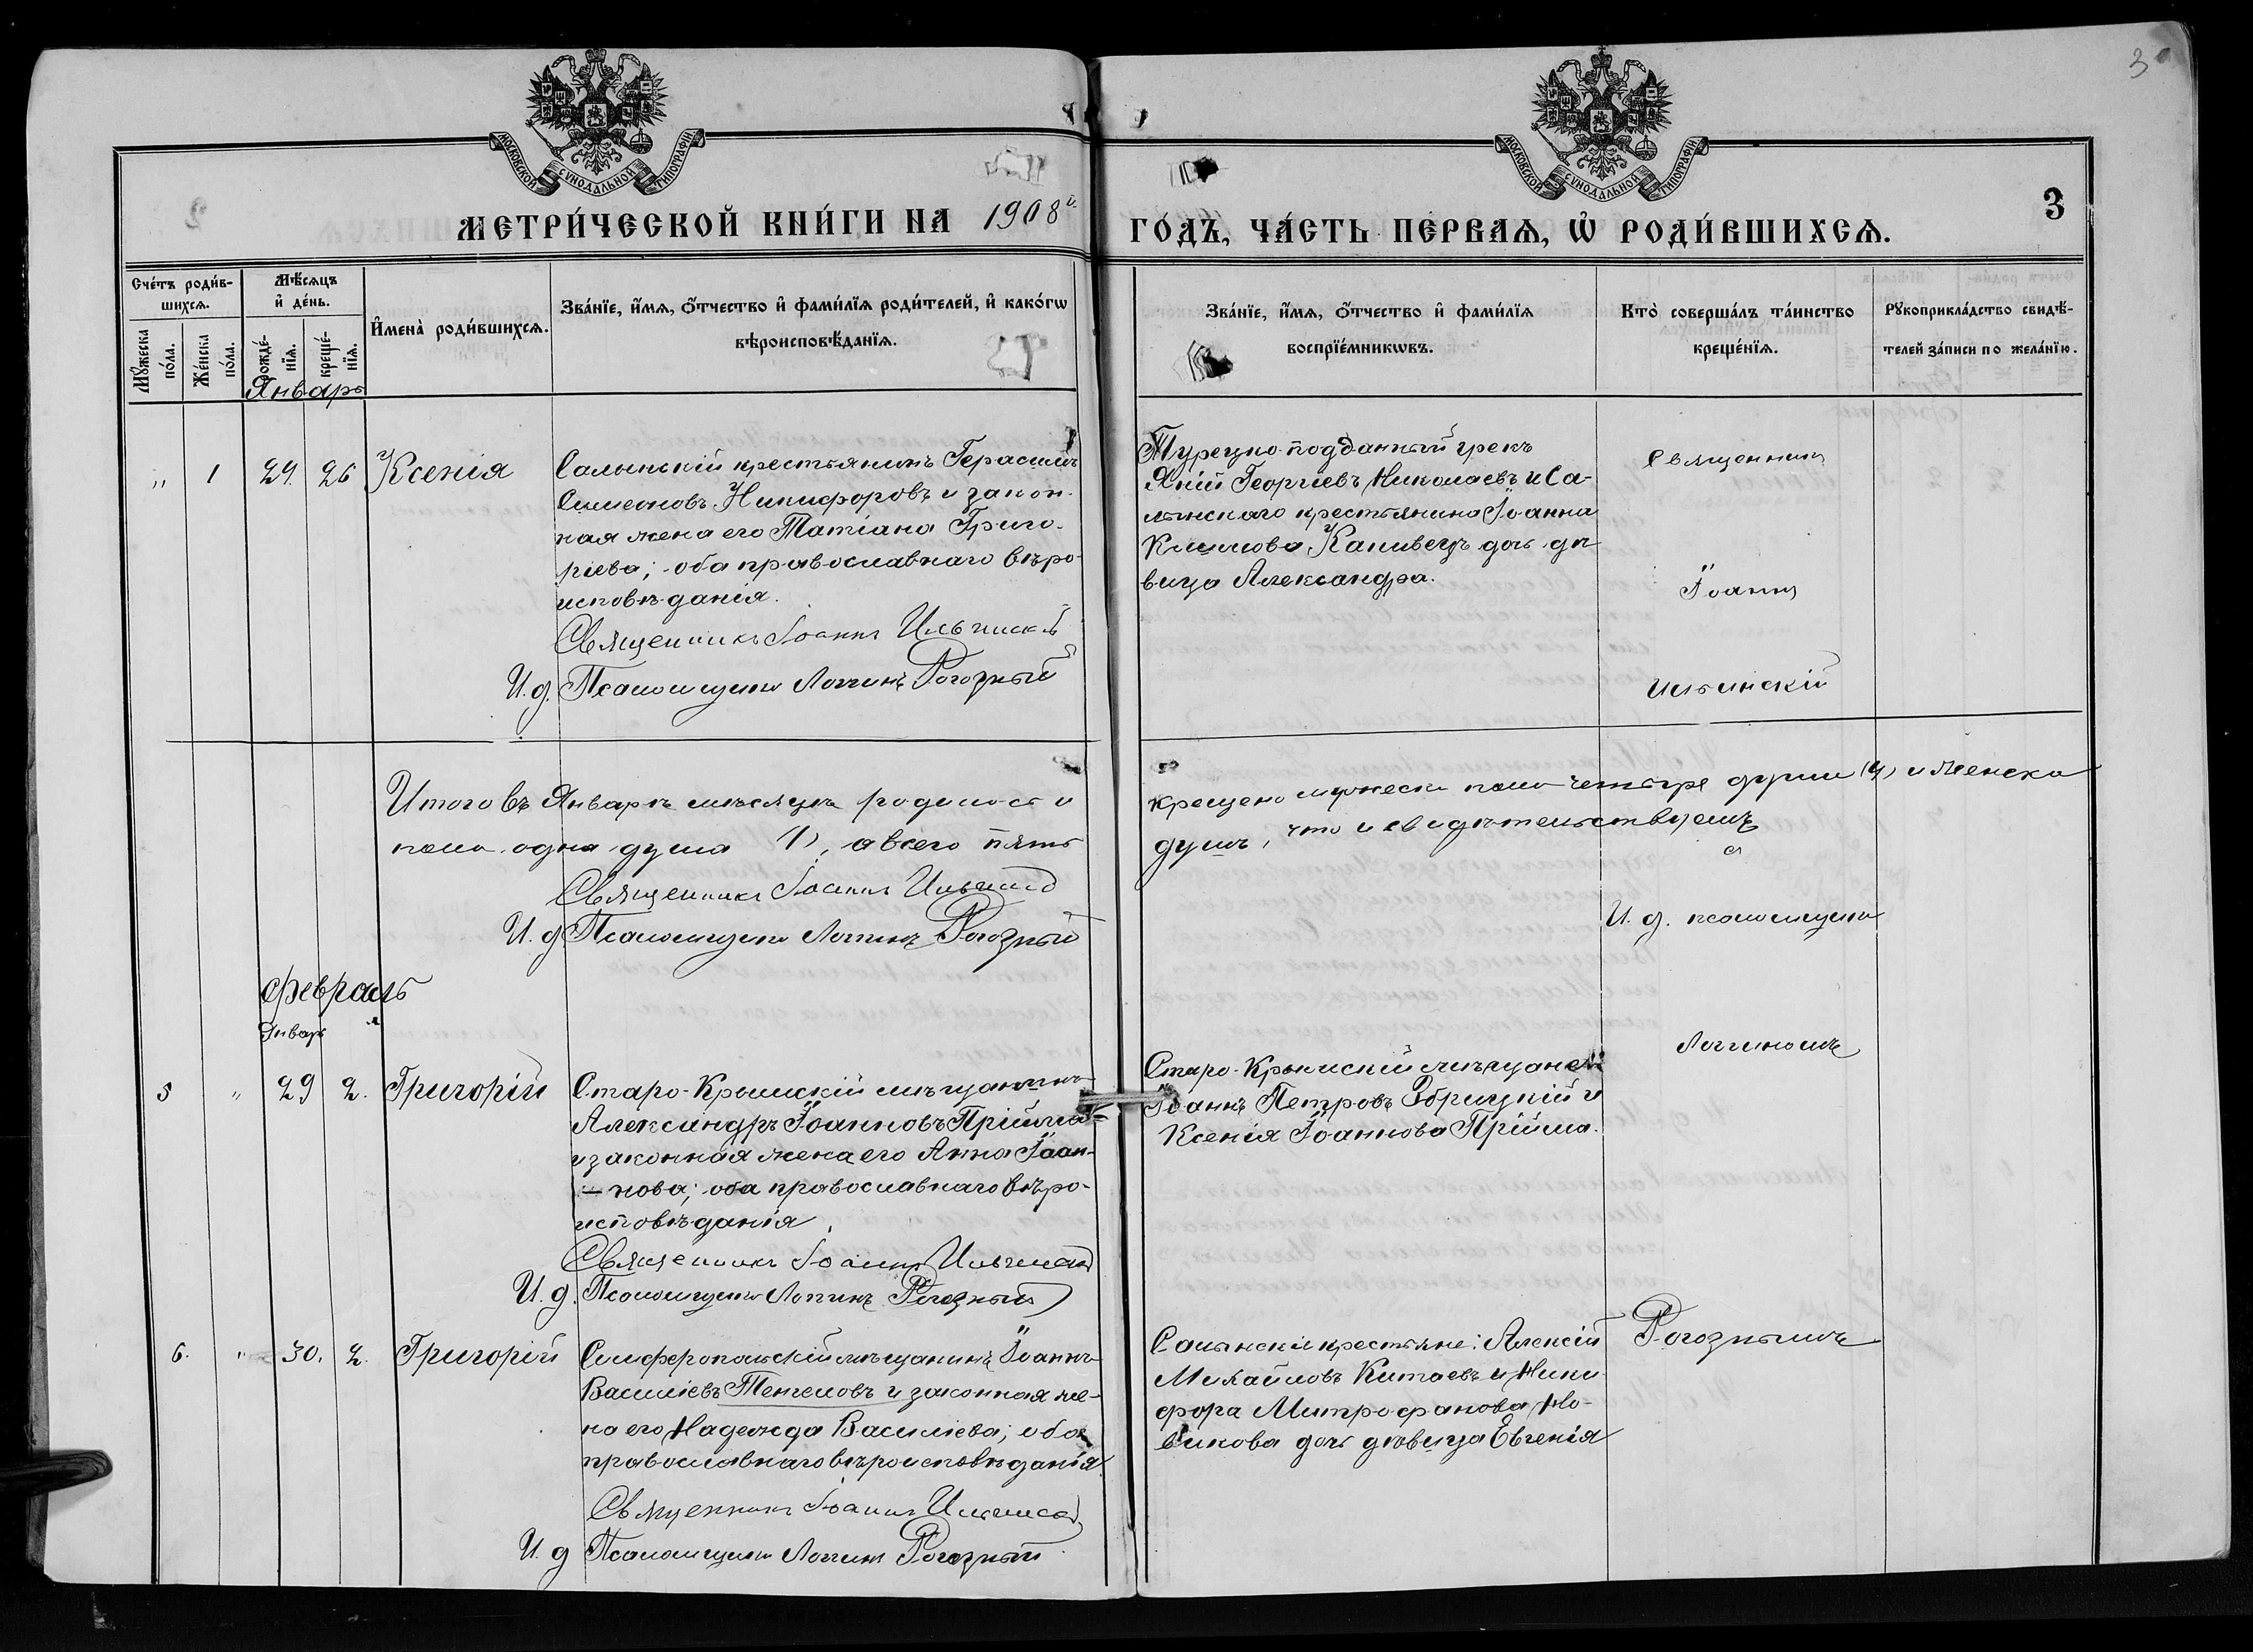 3
МОСКОВСКОЙ СѴНОДАЛЬНОЙ ТИПОГРАФІИ
МОСКОВСКОЙ СѴНОДАЛЬНОЙ ТИПОГРАФІИ
3
МЕТРИ́ЧЕСКОЙ КНИ́ГИ НА 1908й
ГО́ДЪ, ЧА́СТЬ ПЕ́РВАѦ, Ѡ҆ РОДИ́ВШИХСѦ.
Сче́тъ роди́в-
шихсѧ.
Мꙋ́жеска по́ла.
Же́нска по́ла.
Мѣ́сѧцъ
и҆ де́нь.
рожде́-
нїѧ.
креще́-
нїѧ.
И҆мена̀ роди́вшихсѧ.
Зва́нїе, и҆́мѧ, ѻ҆́тчество и҆ фами́лїѧ роди́телей, и҆ како́гѡ
вѣроисповѣ́данїѧ.
Зва́нїе, и҆́мѧ, ѻ҆́тчество и҆ фами́лїѧ
воспрїе́мникѡвъ.
Кто̀ соверша́лъ та́инство
креще́нїѧ.
Рꙋкоприкла́дство свидѣ́-
телей за́писи по жела́нїю.
Январь
„ 1 24 26 Ксенія
Салынскій крестьянинъ Герасимъ
Симеоновъ Никифоровъ и закон-
ная жена его Татіана Григо-
ріева; оба православнаго вѣро-
исповѣданія.
Священникъ Іоаннъ Ильинскій
И. д. Псаломщика Логгинъ Рогозный
Турецко-подданный грекъ
Яній Георгіевъ Николаевъ и Са-
лынскаго крестьянина Іоанна
Климова Капивецъ дочь дѣ-
вица Александра.
Священникъ
Іоаннъ
Ильинскій
Итого въ Январѣ мѣсяцѣ родилось и
крещено мужеска пола четыре души (4) и женска
пола одна душа 1), а всего пять
душъ, что и свидѣтельствуемъ
Священникъ Іоаннъ Ильинскій
И. д. Псаломщика Логгинъ Рогозный
съ
И. д. псаломщика
Логгиномъ
Рогознымъ
Февраль
Январь
5 „ 29 2. Григорій
Старо-Крымскій мѣщанинъ
Александръ Іоанновъ Прійма
и законная жена его Анна Іоан-
нова; оба православнаго вѣро-
исповѣданія.
Священникъ Іоаннъ Ильинскій
И. д. Псаломщика Логгинъ Рогозный
Старо-Крымскій мѣщане:
Іоаннъ Петровъ Збрицкій и
Ксенія Іоаннова Прійма.
6. „ 30. 2. Григорій
Симферопольскій мѣщанинъ Іоаннъ
Василіевъ Тенгеловъ и законная же-
на его Надежда Василіева; оба
православнаго вѣроисповѣданія.
Священникъ Іоаннъ Ильинскій
И. д Псаломщика Логгинъ Рогозный
Салынскіе крестьяне: Алексій
Михайловъ Китаевъ и Ники-
фора Митрофанова Но-
викова дочь дѣвица Евгенія